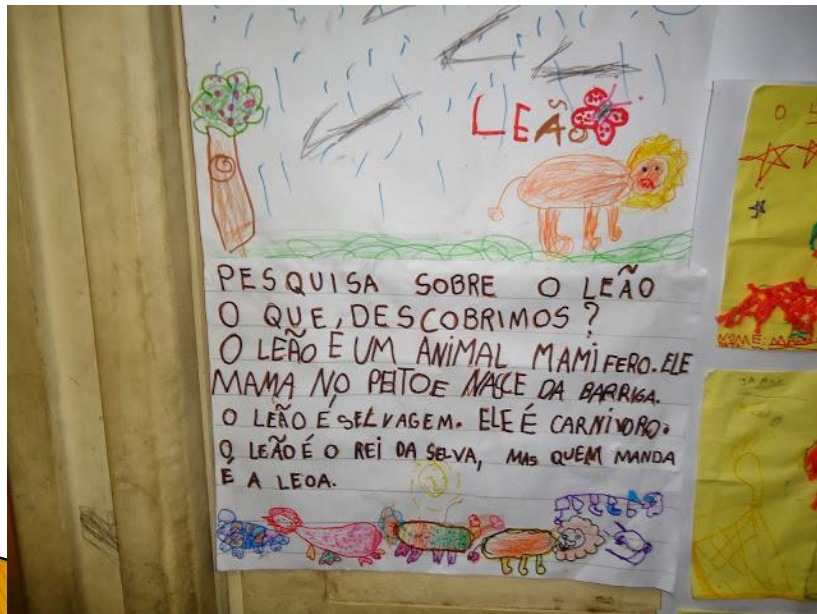 LEÃO
PESQUISA SOBRE O LEÃO
O QUE, DESCOBRIMOS?
O LEÃO É UM ANIMAL MAMIFERO. ELE
MAMA NO PEITO E NASCE DA BARRIGA.
O LEÃO É SELVAGEM. ELE É CARNIVORO.
O LEÃO É O REI DA SELVA, MAS QUEM MANDA
É A LEOA.
O
NOME: